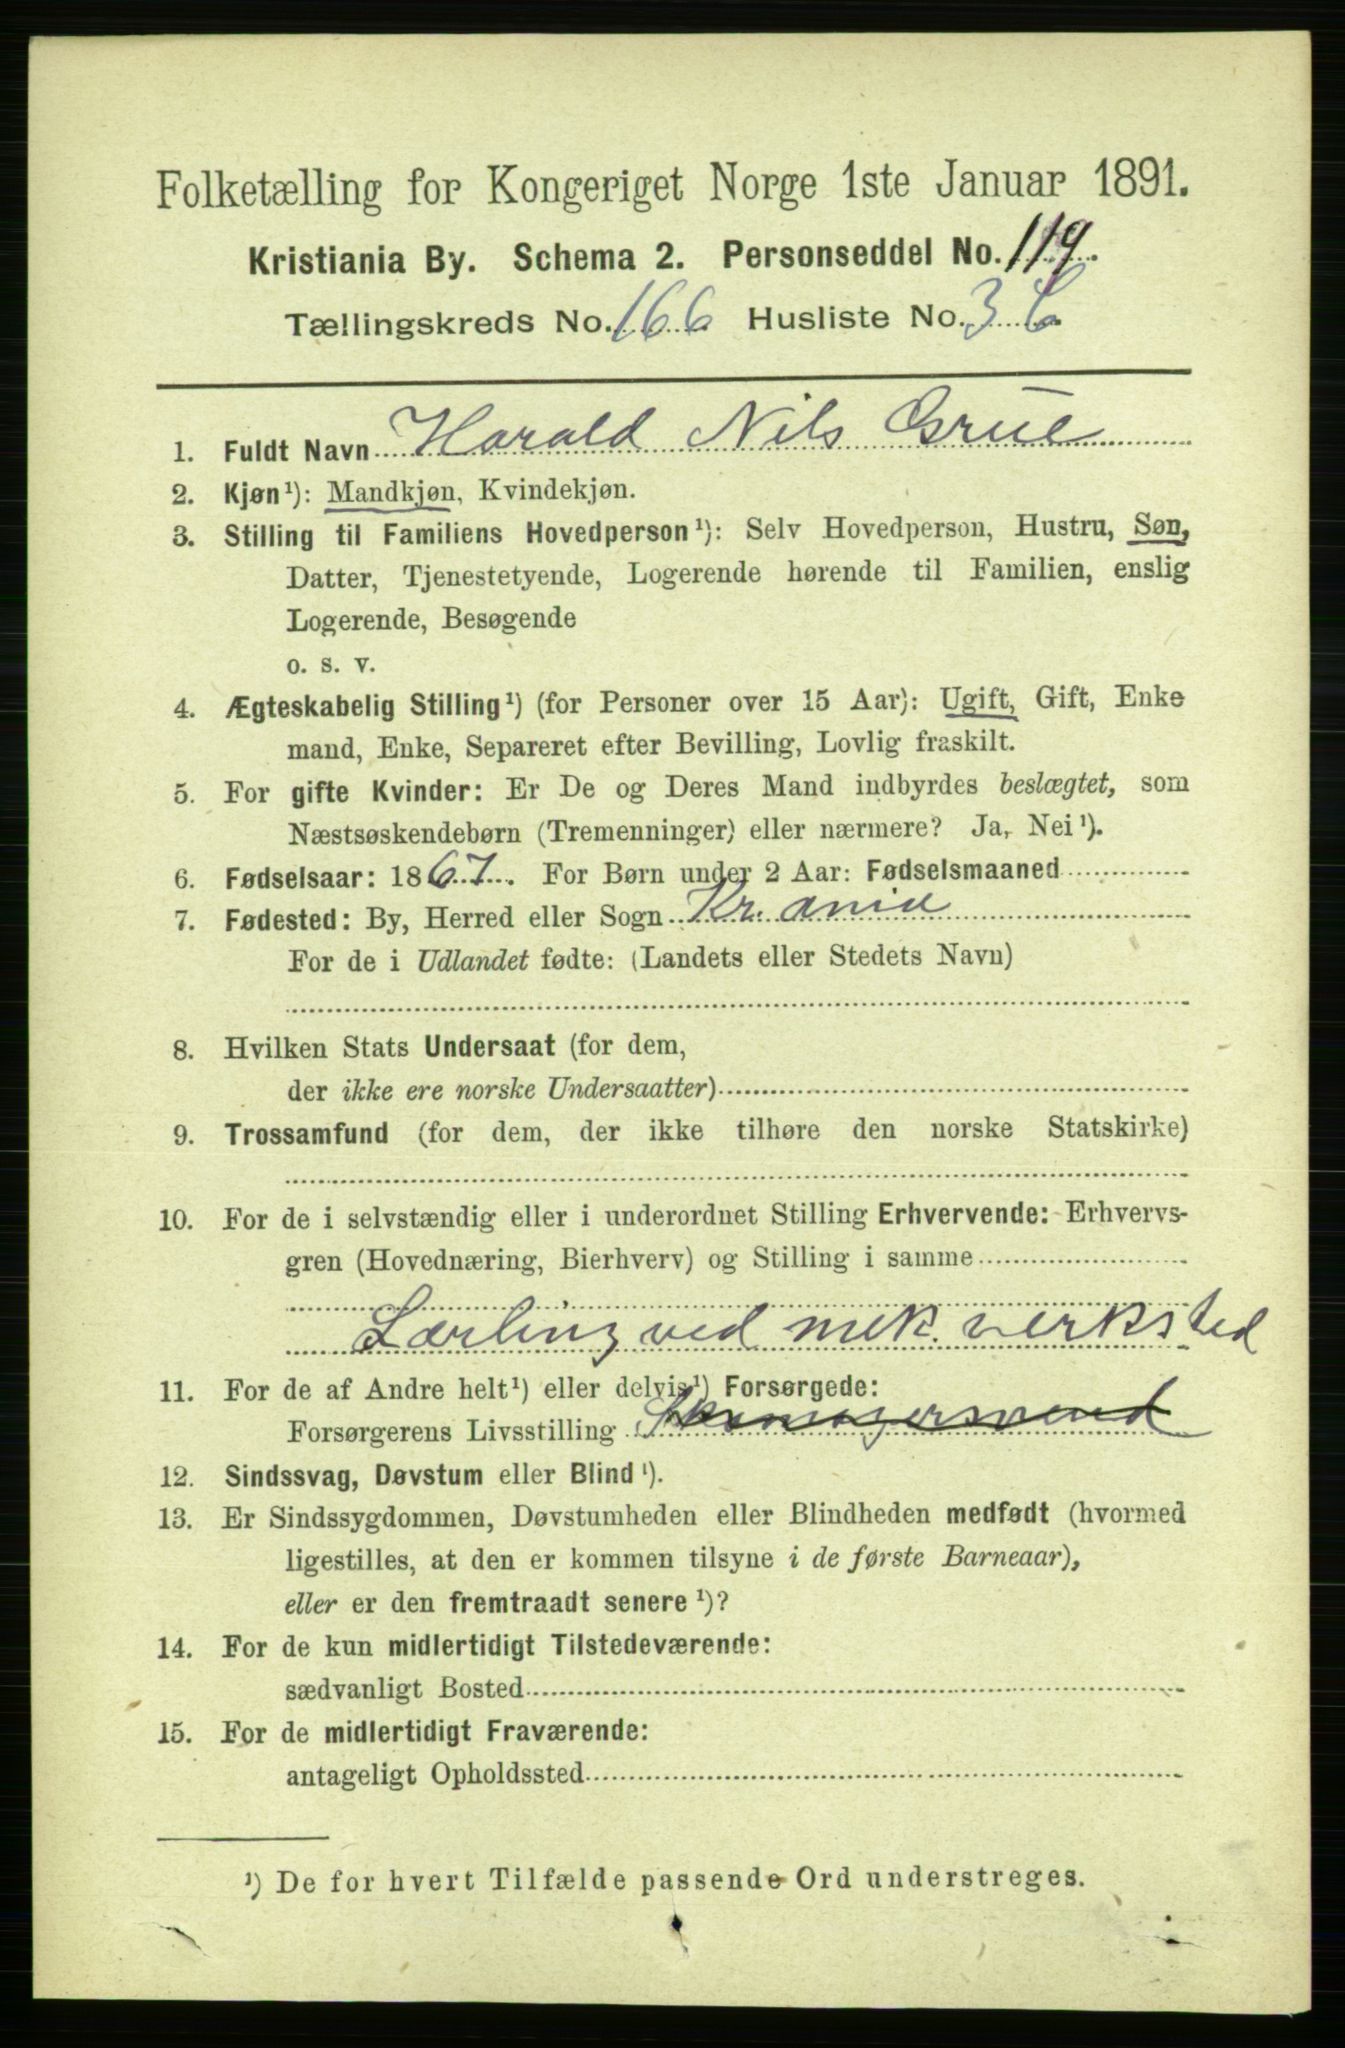 Folketælling for Kongeriget Norge 1ste Januar 1891.
Kristiania By. Schema 2. Personseddel No. 119.
Tællingskreds No. 166 Husliste No. 3 C
1. Fuldt Navn Harald Nils Grue
2. Kjøn¹): Mandkjøn, Kvindekjøn.
3. Stilling til Familiens Hovedperson¹): Selv Hovedperson, Hustru, Søn,
Datter, Tjenestetyende, Logerende hørende til Familien, enslig
Logerende, Besøgende
o. s. v.
4. Ægteskabelig Stilling¹) (for Personer over 15 Aar): Ugift, Gift, Enke
mand, Enke, Separeret efter Bevilling, Lovlig fraskilt.
5. For gifte Kvinder: Er De og Deres Mand indbyrdes beslægtet, som
Næstsøskendebørn (Tremenninger) eller nærmere? Ja, Nei¹).
6. Fødselsaar: 1867. For Børn under 2 Aar: Fødselsmaaned
7. Fødested: By, Herred eller Sogn Kr.ania
For de i Udlandet fødte: (Landets eller Stedets Navn)
8. Hvilken Stats Undersaat (for dem,
der ikke ere norske Undersaatter)
9. Trossamfund (for dem, der ikke tilhøre den norske Statskirke)
10. For de i selvstændig eller i underordnet Stilling Erhvervende: Erhvervs-
gren (Hovednæring, Bierhverv) og Stilling i samme
Lærling ved mek. verksted
11. For de af Andre helt¹) eller delvis¹) Forsørgede:
Forsørgerens Livsstilling Skomagersvend
12. Sindssvag, Døvstum eller Blind¹).
13. Er Sindssygdommen, Døvstumheden eller Blindheden medfødt (hvormed
ligestilles, at den er kommen tilsyne i de første Barneaar),
eller er den fremtraadt senere¹)?
14. For de kun midlertidigt Tilstedeværende:
sædvanligt Bosted
15. For de midlertidigt Fraværende:
antageligt Opholdssted
¹) De for hvert Tilfælde passende Ord understreges.